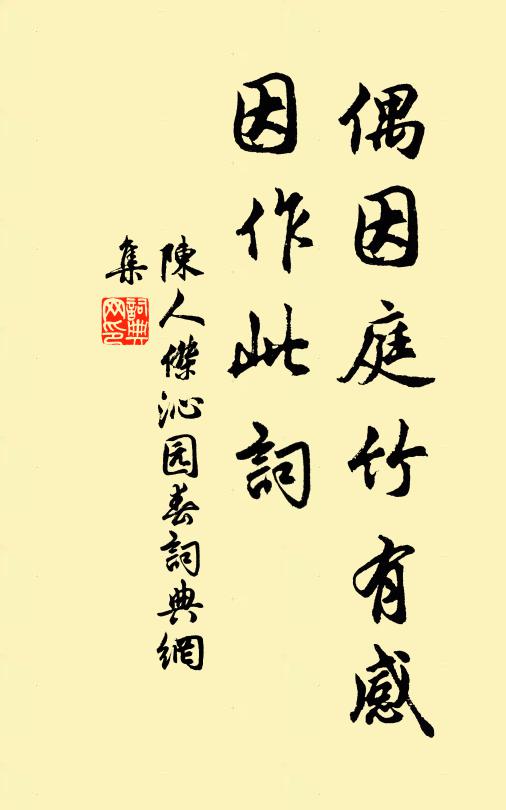 偶因庭竹有感
因作此詞
陳人傑沁园春詞典網
集
詞典
网印